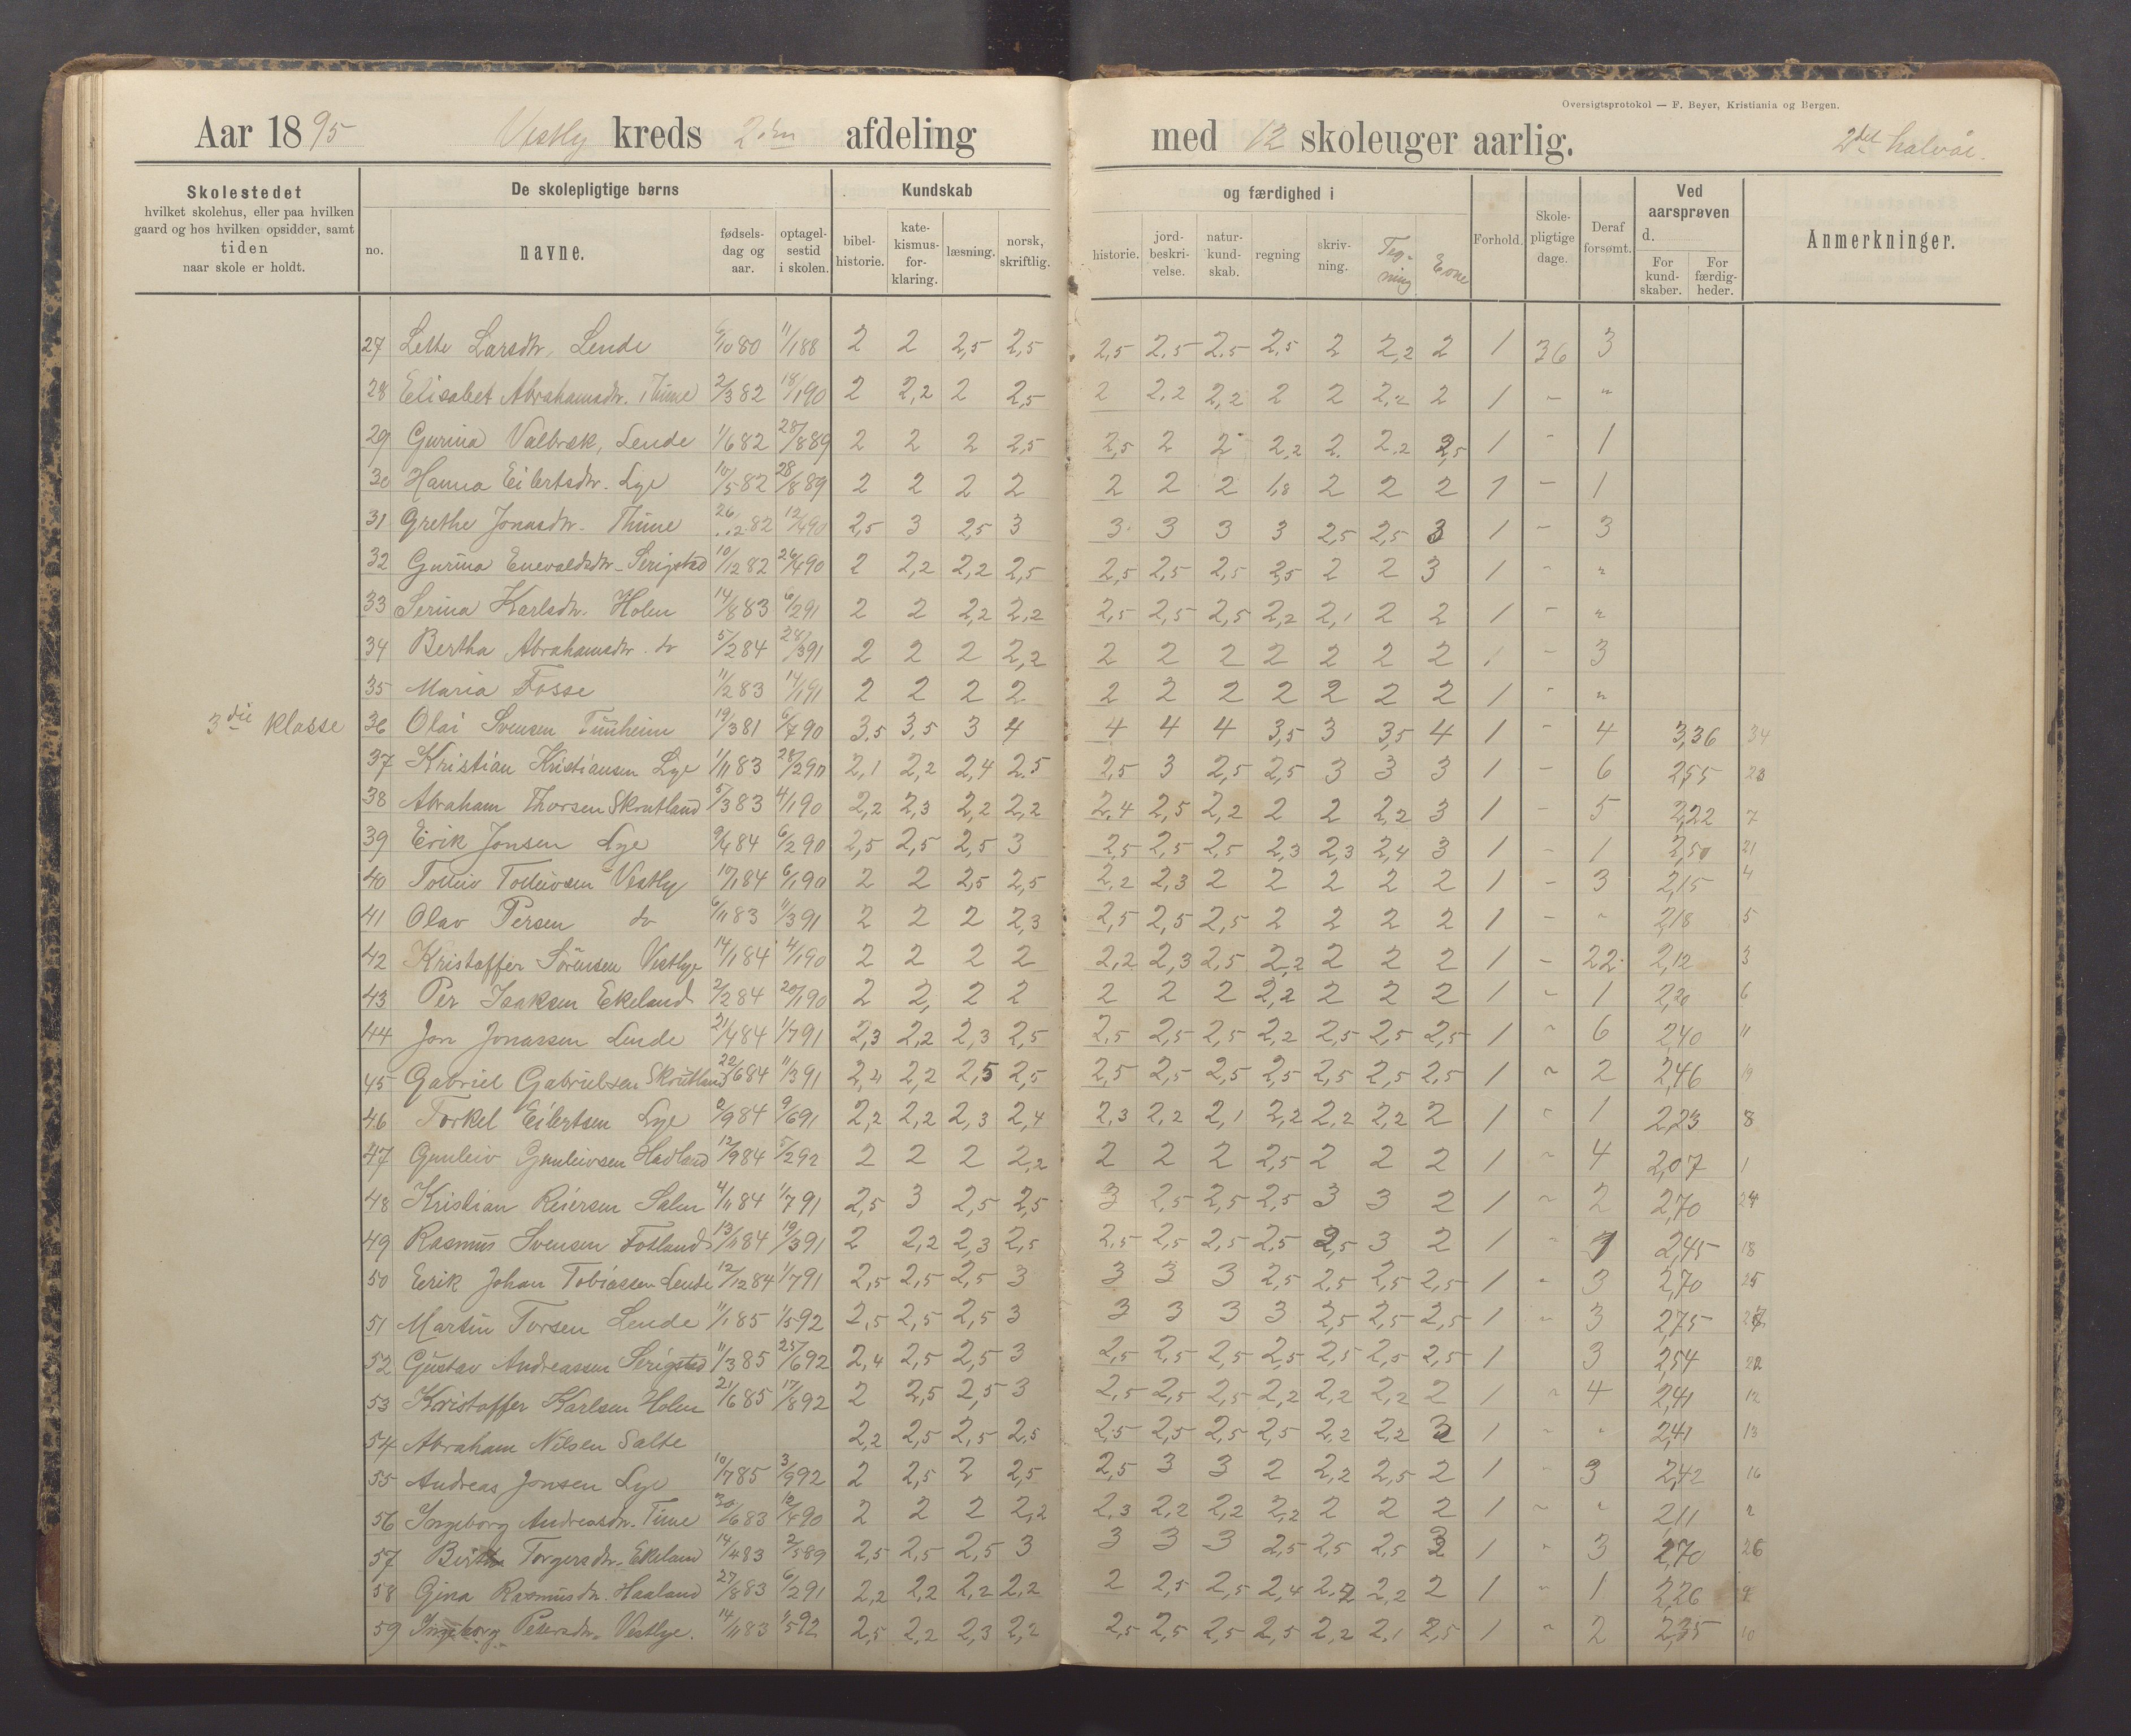 Oversigtsprotokol — F. Beyer, Kristiania og Bergen.
Aar 1895 Vestly kreds 2den afdeling med 12 skoleuger aarlig. 2det halvår.
Skolestedet hvilket skolehus, eller paa hvilken gaard og hos hvilken opsidder, samt tiden naar skole er holdt.
De skolepligtige børns
no. navne. fødsels-dag og aar. optagel-sestid i skolen.
Kundskab og færdighed i
bibel-historie. kate-kismus-for-klaring. læsning. norsk, skriftlig. historie. jord-beskri-velse. natur-kund-skab. regning skriv-ning. Teg-ning Evne
Forhold. Skole-pligtige dage. Deraf forsømt. Ved aarsprøven d. For kund-skaber. For færdig-heder. Anmerkninger.
27 Lette Larsdtr, Lende 6/10 80 11/1 88 2 2 2,5 2,5 2,5 2,5 2,5 2,5 2 2,2 2 1 36 3
28 Elisabet Abrahamsdtr. Thime 2/3 82 18/1 90 2 2,2 2 2,5 2 2,2 2,2 2 2 2,2 2 1 - "
29 Gurina Valbræk, Lende 1/6 82 28/8 89 2 2 2 2,5 2,5 2 2 2,2 2 2,2 2,5 1 - 1
30 Hanna Eilertsdtr. Lye 10/5 82 28/8 89 2 2 2 2 2 2 2 1,8 2 2 2 1 - 1
31 Grethe Jonasdtr. Thime 26 2 82 12/4 90 2,5 3 2,5 3 3 3 3 3 2,5 2,5 3 1 - 3
32 Gurina Enevaldsdtr. Serigstad 10/12 82 26/4 90 2 2,2 2,2 2,5 2,5 2,5 2,5 2,5 2 2 3 1 - "
33 Serina Karlsdtr. Holen 14/8 83 6/2 91 2 2 2,2 2,2 2,5 2,5 2,5 2,2 2,1 2 2 1 - "
34 Bertha Abrahamsdtr. do 5/2 84 28/3 91 2 2 2 2,2 2 2 2 2 2 2 2 1 - 3
35 Maria Fosse 11/2 83 14/1 91 2 2 2 2 2 2 2 2 2 2 2 1 - "
3die klasse 36 Olai Svensen Tunheim 19/3 81 6/7 90 3,5 3,5 3 4 4 4 4 3,5 3 3,5 4 1 - 4 3,36 34
37 Kristian Kristiansen Lye 1/11 83 28/2 90 2,1 2,2 2,4 2,5 2,5 3 2,5 2,5 3 3 3 1 - 6 2,55 23
38 Abraham Thorsen Skrutland 5/3 83 4/1 90 2,2 2,3 2,2 2,2 2,4 2,5 2,2 2 2 2,2 3 1 - 5 2,22 7
39 Erik Jonsen Lye 9/4 84 6/2 90 2,5 2,5 2,5 3 2,5 2,5 2,5 2,3 2,3 2,4 3 1 - 1 2,50 21
40 Tolleiv Tolleivsen Vestly 10/1 84 6/1 90 2 2 2,5 2,5 2,2 2,3 2 2 2 2 2 1 - 3 2,15 4
41 Olav Persen do 6/11 83 11/3 91 2 2 2 2,3 2,5 2,5 2,5 2 2 2 2 1 - " 2,18 5
42 Kristoffer Sørensen Vestlye 14/1 84 4/1 90 2 2 2 2 2,2 2,3 2,5 2,2 2 2 2 1 - 22 2,12 3
43 Per Isaksen Ekeland 2/2 84 20/1 90 2 2 2 2 2 2 2 2,2 2 2 2 1 - 1 2,20 6
44 Jon Jonassen Lende 21/4 84 1/7 91 2,3 2,2 2,3 2,5 2,5 2,5 2,5 2,2 2,5 2,5 2,5 1 " 6 2,40 11
45 Gabriel Gabrielsen Skrutland 22/6 84 11/3 91 2,4 2,2 2,5 2,5 2,5 2,5 2,5 2,5 2,5 2,5 2,5 1 " 2 2,46 19
46 Torkel Eilertsen Lye 8/9 84 9/6 91 2,2 2,2 2,3 2,4 2,3 2,2 2,1 2,2 2,2 2,2 2 1 " 1 2,23 8
47 Gunleiv Gunleivsen Havland 12/9 84 5/2 92 2 2 2 2,2 2 2 2 2,5 2 2 2 1 " 4 2,07 1
48 Kristian Reiersen Salen 4/11 84 1/7 91 2,5 3 2,5 2,5 3 2,5 2,5 2,5 3 3 2 1 " 2 2,70 24
49 Rasmus Svensen Fotland 13/11 84 19/3 91 2 2,2 2,3 2,5 2,5 2,5 2,5 2,5 2,5 3 2 1 " 1 2,45 18
50 Eerik Johan Tobiassen Lende 12/12 84 1/7 91 2,5 2,5 2,5 3 3 3 3 2,5 2,5 2,5 2,5 1 " 3 2,70 25
51 Martin Torsen Lende 11/1 85 1/5 92 2,5 2,5 2,5 3 3 3 3 3 2,5 2,5 2,5 1 " 3 2,75 27
52 Gustav Andreassen Serigstad 11/3 85 25/6 92 2,4 2,5 2,5 3 2,5 2,5 2,5 2,5 2,5 2,5 2,5 1 3 2,54 22
53 Kristoffer Karlsen Holen 21/6 85 17/8 92 2 2,5 2,5 3 2,5 2,5 2,5 2,2 2,2 2,2 2 1 " 4 2,41 12
54 Abraham Nilsen Salte 2,2 2,5 2,5 2,5 2,5 2,5 2,5 2,5 2,2 2,2 3 1 " " 2,41 13
55 Andreas Jonsen Lye 10/7 85 3/9 92 2 2,5 2 2,5 2,5 3 3 2 2,2 2,5 2 1 " 3 2,42 16
56 Ingeborg Andreasdtr. Time 30/6 83 12/4 90 2 2 2 2,2 2,3 2,2 2,2 2,2 2 2 2 1 " " 2,11 2
57 Berthe Torgersdtr. Ekeland 14/4 83 2/5 89 2,5 2,5 2,5 3 3 3 3 2,5 2,5 2,5 3 1 " 3 2,70 26
58 Gina Rasmusdtr. Haaland 27/8 83 6/2 91 2,2 2,2 2,2 2,2 2 2,5 2,5 2,4 2,2 2,2 2 1 " 1 2,26 9
59 Ingeborg Petersdtr. Vestlye. 14/11 83 1/5 92 2,5 2,2 2,3 2,2 2,5 2,5 2,5 2,5 2,2 2,1 2,5 1 " 2 2,35 10